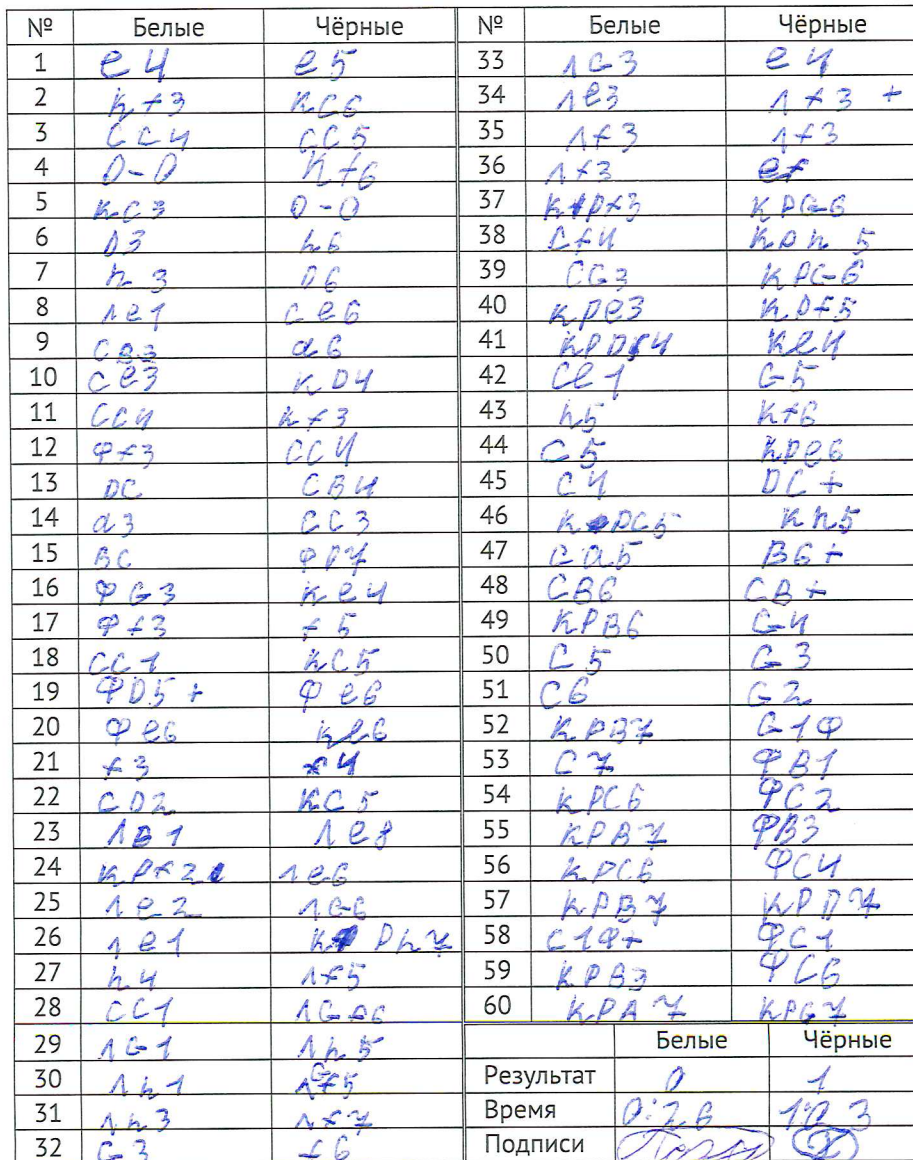 № Белые Чёрные
1 e4 e5
2 Kf3 KC6
3 CC4 CC5
4 0-0 Kf6
5 KC3 0-0
6 D3 h6
7 h3 D6
8 Лe1 Ce6
9 CB3 a6
10 Ce3 KD4
11 CC4 Kf3
12 Фf3 CC4
13 DC CB4
14 a3 CC3
15 BC ФD7
16 ФG3 Ke4
17 Фf3 f5
18 CC1 KC5
19 ФD5+ Фe6
20 Фe6 Ke6
21 f3 f4
22 CD2 KC5
23 ЛB1 Лe8
24 KPf2 Лe6
25 Лe2 ЛG6
26 Лe1 KPh7
27 h4 Лf5
28 CC1
29 ЛG1 Лh5
30 Лh1
31 Лh3 Лf7
32 G3 f6
№ Белые Чёрные
33 ЛG3 e4
34 Лe3 Лf3+
35 Лf3 Лf3
36 Лf3 ef
37 KPf3 KPG6
38 Cf4 KPh5
39 CG3 KPG6
40 KPe3 KPf5
41 KPD4 Ke4
42 Ce1 G5
43 h5 Kf6
44 C5 KPe6
45 C4 DC+
46 KPC5 Kh5
47 Ca5 B6+
48 CB6 CB+
49 KPB6 G4
50 C5 G3
51 C6 G2
52 KPB7 G1Ф
53 C7 ФB1
54 KPC6 ФC2
55 KPB7 ФB3
56 KPC6 ФC4
57 KPB7 KPD7
58 C1Ф+ ФC1
59 KPB3 ФC6
60 KPA7 KPG7
Белые Чёрные
Результат 0 1
Время 0:26 1:03
Подписи